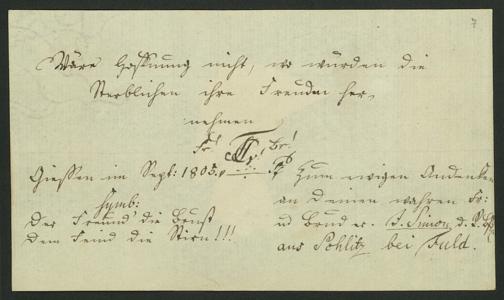 7
Wäre Hoffnung nicht, wo würden die
Sterblichen ihre Freuden her-
nehmen
Giessen im Sept: 1805.
Symb:
Der Freund die Brust
dem Feind die Stirn!!!
Zum ewigen Andenken
an Deinen wahren Fr:
und Bruder. J. Simon, d.
aus Pohlitz bei Fuld.